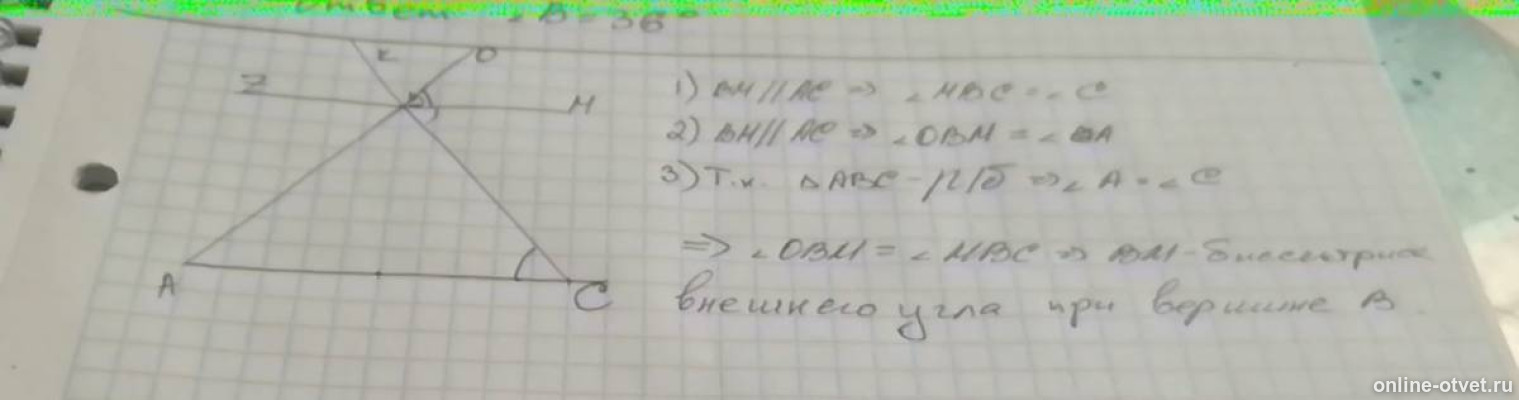 Ответ ∠B = 36°
K O
Z M
A C
1) BM // AC => ∠MBC = ∠C
2) BM // AC => ∠OBM = ∠A
3) Т.к. △ABC - р/б => ∠A = ∠C
=> ∠OBM = ∠MBC => BM - биссектриса
внешнего угла при вершине B.
online-otvet.ru